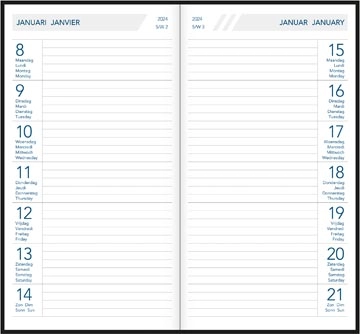 JANUARI JANVIER
2024
S/W 2
8
Maandag
Lundi
Montag
Monday
9
Dinsdag
Mardi
Dienstag
Tuesday
10
Woensdag
Mercredi
Mittwoch
Wednesday
11
Donderdag
Jeudi
Donnerstag
Thursday
12
Vrijdag
Vendredi
Freitag
Friday
13
Zaterdag
Samedi
Samstag
Saturday
14
Zon Dim
Sonn Sun
2024
S/W 3
JANUAR JANUARY
15
Maandag
Lundi
Montag
Monday
16
Dinsdag
Mardi
Dienstag
Tuesday
17
Woensdag
Mercredi
Mittwoch
Wednesday
18
Donderdag
Jeudi
Donnerstag
Thursday
19
Vrijdag
Vendredi
Freitag
Friday
20
Zaterdag
Samedi
Samstag
Saturday
21
Zon Dim
Sonn Sun